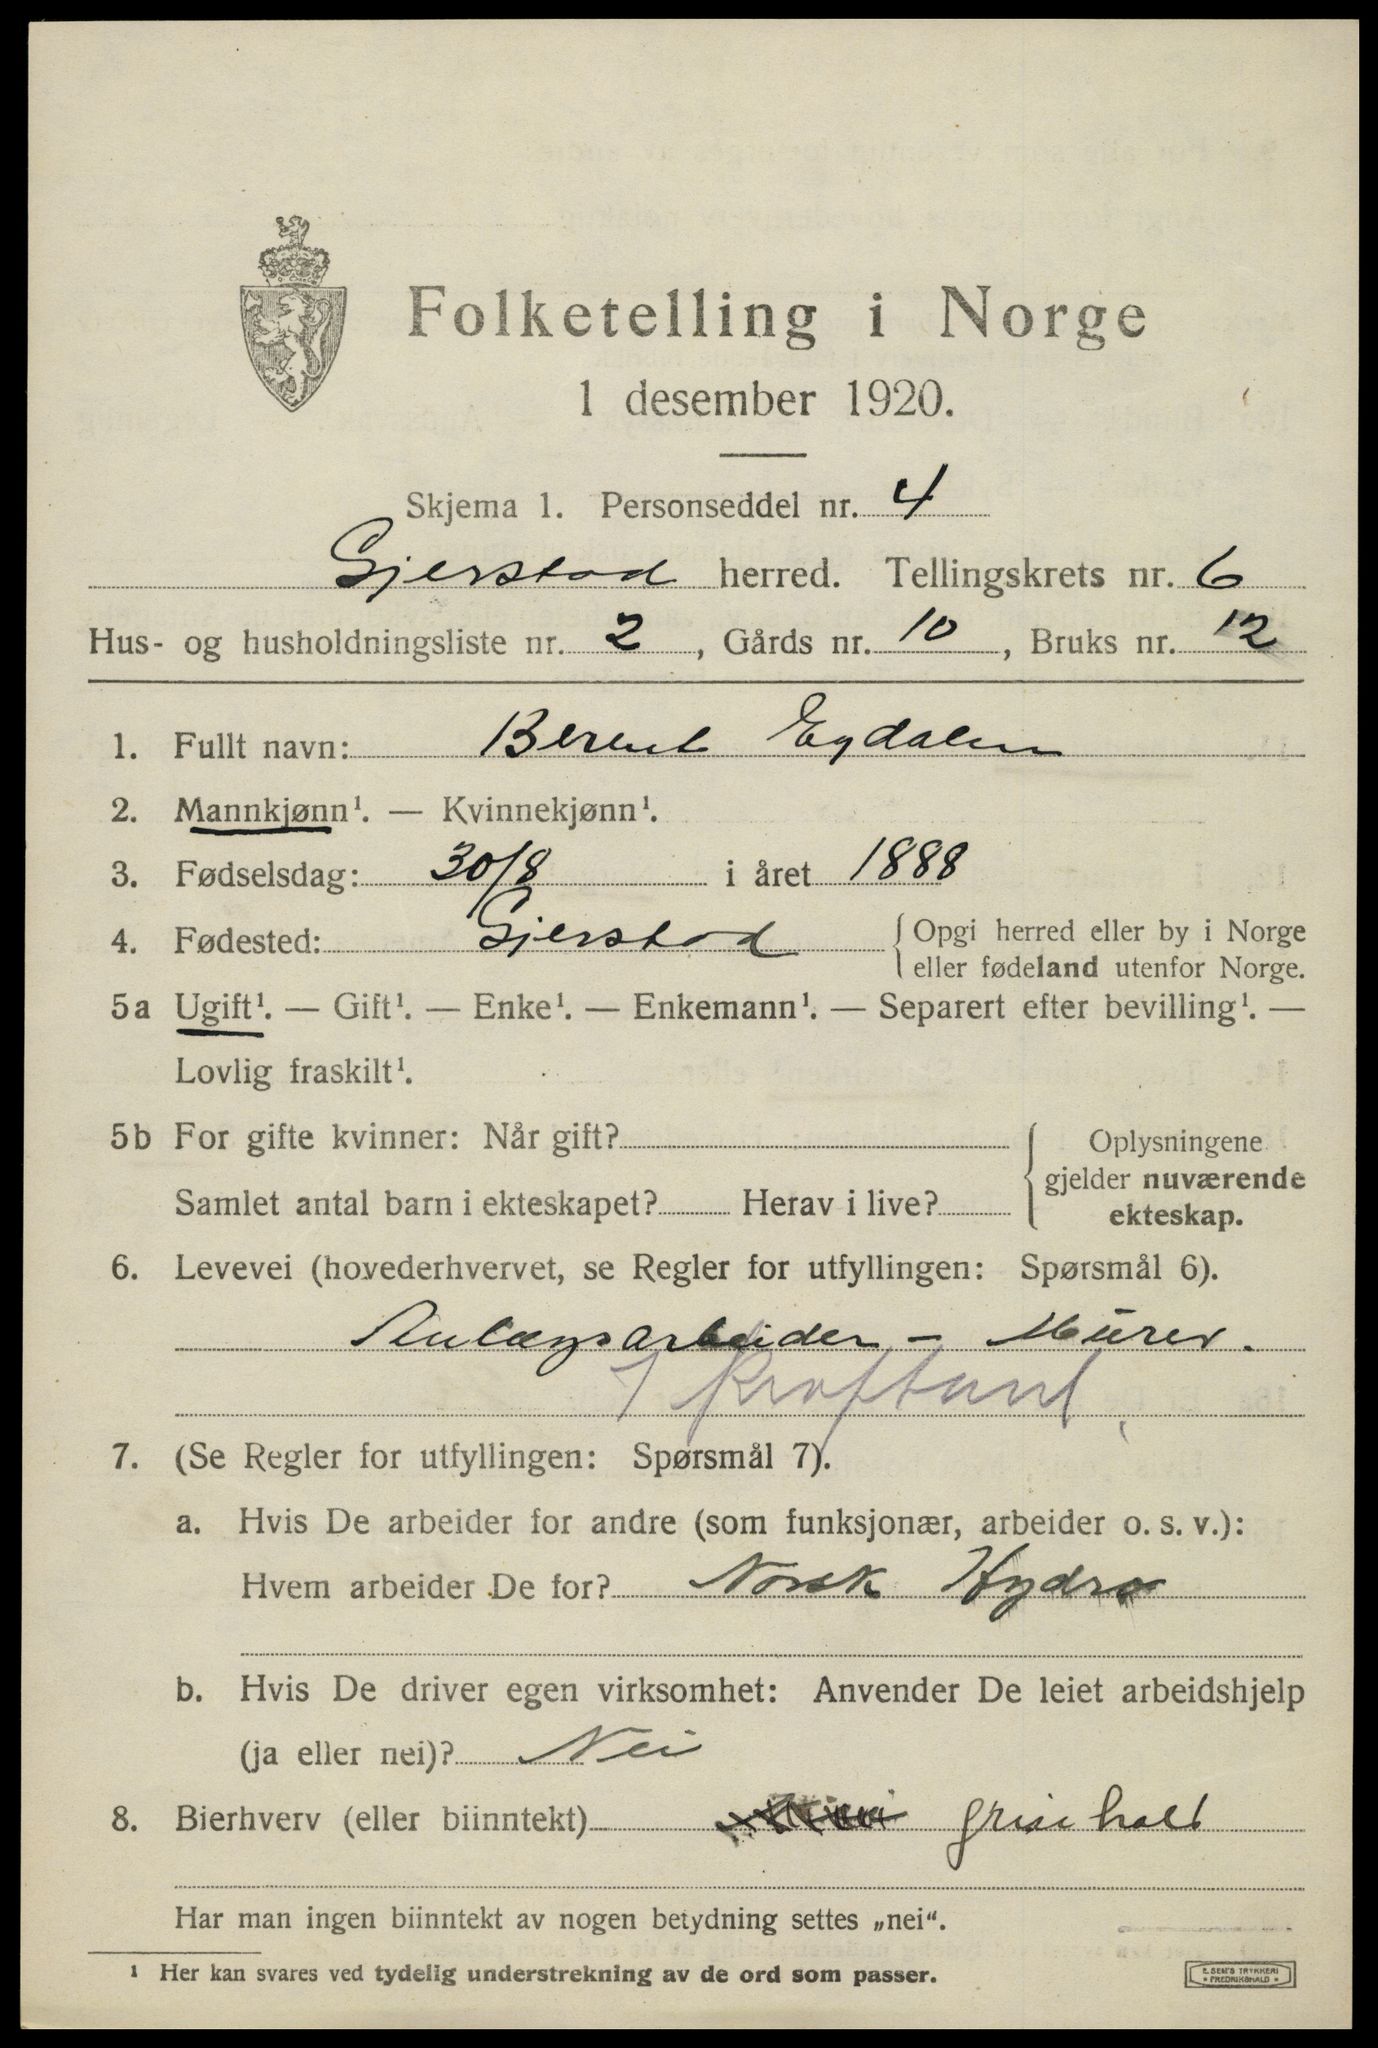 Folketelling i Norge
1 desember 1920.
Skjema 1. Personseddel nr. 4
Gjerstad herred. Tellingskrets nr. 6
Hus- og husholdningsliste nr. 2, Gårds nr. 10, Bruks nr. 12
1. Fullt navn: Berent Egdalen
2. Mannkjønn¹. — Kvinnekjønn¹.
3. Fødselsdag: 30/8 i året 1888
4. Fødested: Gjerstad { Opgi herred eller by i Norge
eller fødeland utenfor Norge.
5a Ugift¹. — Gift¹. — Enke¹. — Enkemann¹. — Separert efter bevilling¹. —
Lovlig fraskilt¹.
5b For gifte kvinner: Når gift?
Samlet antal barn i ekteskapet? Herav i live?
Oplysningene
gjelder nuværende
ekteskap.
6. Levevei (hovederhvervet, se Regler for utfyllingen: Spørsmål 6).
Anlægsarbeider - Murer.
7. (Se Regler for utfyllingen: Spørsmål 7).
a. Hvis De arbeider for andre (som funksjonær, arbeider o. s. v.):
Hvem arbeider De for? Norsk Hydro
b. Hvis De driver egen virksomhet: Anvender De leiet arbeidshjelp
(ja eller nei)? Nei
8. Bierhverv (eller biinntekt) grisehold
Har man ingen biinntekt av nogen betydning settes „nei".
¹ Her kan svares ved tydelig understrekning av de ord som passer.
E. SEM'S TRYKKERI
* FREDRIKSHALD *